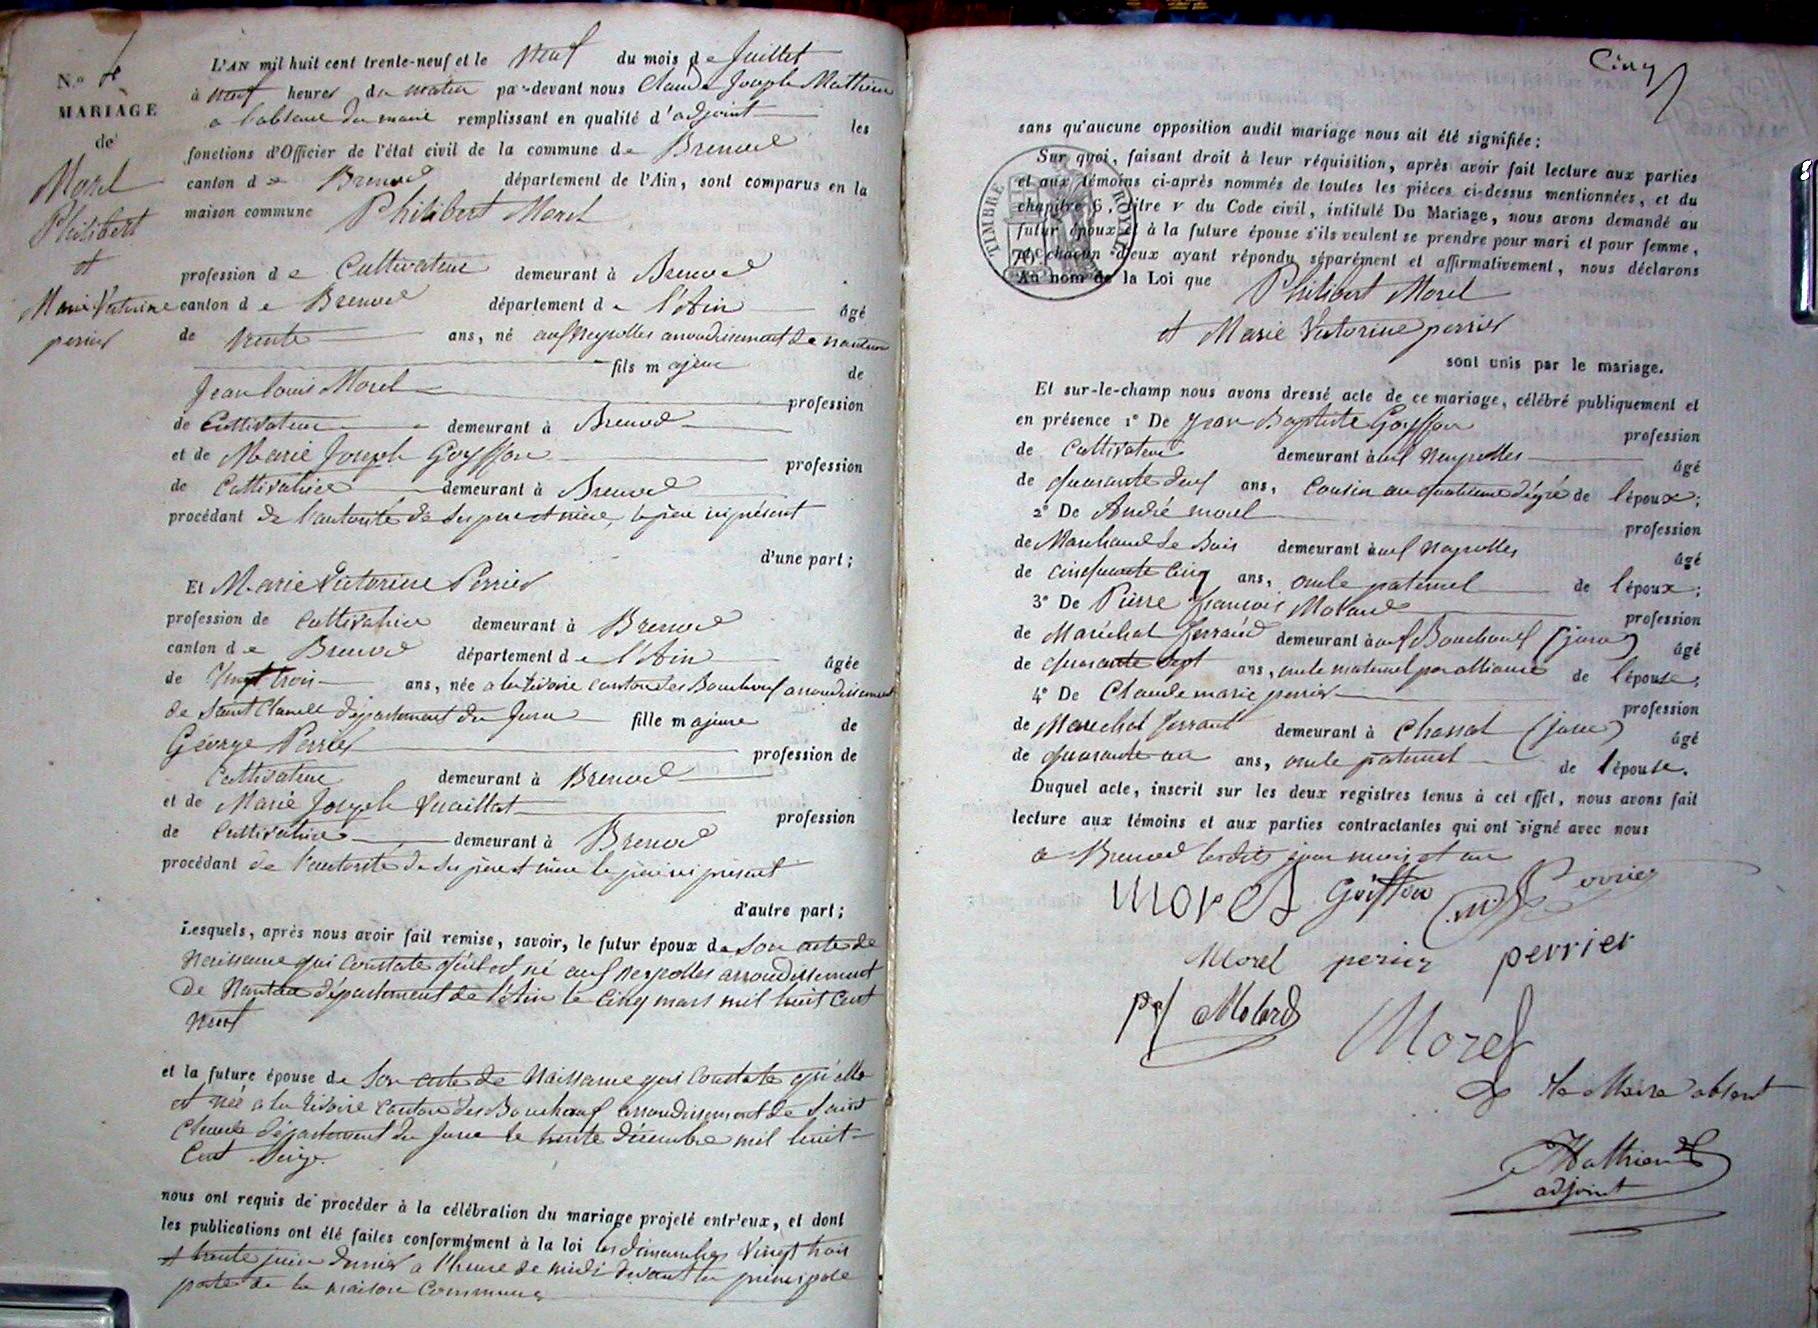 N.º 4
MARIAGE
de
Morel
Philibert
et
Marie Victorine
perrier
L'AN mil huit cent trente-neuf et le neuf du mois de Juillet
à neuf heures du matin par-devant nous Claude Joseph Mathieu
a l'absence du maire remplissant en qualité d'adjoint les
fonctions d'Officier de l'état civil de la commune de Brenod
canton de Brenod département de l'Ain, sont comparus en la
maison commune Philibert Morel
profession de Cultivateur demeurant à Brenod
canton de Brenod département de l'Ain âgé
de trente ans, né aux Neyrolles arrondissement de nantua
fils majeur de
Jean Louis Morel profession
de Cultivateur demeurant à Brenod
et de Marie Joseph Goyffon profession
de Cultivatrice demeurant à Brenod
procédant de l'autorité de ses pere et mère, le père ici présent
d'une part;
Et Marie Victorine Perrier
profession de Cultivatrice demeurant à Brenod
canton de Brenod département de l'Ain âgée
de Vingt trois ans, née a la rivoire canton des Bouchoux arrondissement
de Saint Claude département du Jura fille majeure de
George Perrier profession de
Cultivateur demeurant à Brenod
et de Marie Joseph Vuaillat profession
de Cultivatrice demeurant à Brenod
procédant de l'autorité de ses père et mère le père ici présent
d'autre part;
Lesquels, après nous avoir fait remise, savoir, le futur époux de son acte de
Naissance qui constate qu'il est né aux neyrolles arrondissement
de Nantua département de l'Ain le cinq mars mil huit cent
neuf
et la future épouse de son acte de Naissance qui constate qu'elle
est née a la rivoire canton des Bouchoux arrondissement de Saint
Claude département du Jura le trente décembre mil huit
Cent Seize
nous ont requis de procéder à la célébration du mariage projeté entr'eux, et dont
les publications ont été faites conformément à la loi les dimanches Vingt trois
et trente juin dernier a l'heure de midi devant la principale
porte de la maison Commune
Cinq
sans qu'aucune opposition audit mariage nous ait été signifiée;
Sur quoi, faisant droit à leur réquisition, après avoir fait lecture aux parties
et aux témoins ci-après nommés de toutes les pièces ci-dessus mentionnées, et du
chapitre 6, titre v du Code civil, intitulé Du Mariage, nous avons demandé au
futur époux et à la future épouse s'ils veulent se prendre pour mari et pour femme,
et chacun d'eux ayant répondu séparément et affirmativement, nous déclarons
Au nom de la Loi que Philibert Morel
et Marie Victorine perrier
sont unis par le mariage.
TIMBRE ROYAL
Et sur-le-champ nous avons dressé acte de ce mariage, célébré publiquement et
en présence 1º De Jean Baptiste Goyffon profession
de Cultivateur demeurant à aux Neyrolles âgé
de quarante deux ans, Cousin au quatrieme dégré de l'époux;
2º De André morel profession
de Marchand de Bois demeurant à aux Neyrolles âgé
de cinquante cinq ans, oncle paternel de l'époux;
3º De Pierre françois Molard profession
de Maréchal ferrand demeurant à aux Bouchoux (jura) âgé
de quarante sept ans, oncle maternel par alliance de l'épouse;
4º De Claude marie perrier profession
de Marechal ferrant demeurant à Chassal (jura) âgé
de quarante un ans, oncle paternel de l'épouse.
Duquel acte, inscrit sur les deux registres tenus à cet effet, nous avons fait
lecture aux témoins et aux parties contractantes qui ont signé avec nous
a Brenod lesdits jour mois et an
morel Goiffon Perrier
Morel perier perrier
pf Molard Morel
Le Maire absent
Mathieu
adjoint